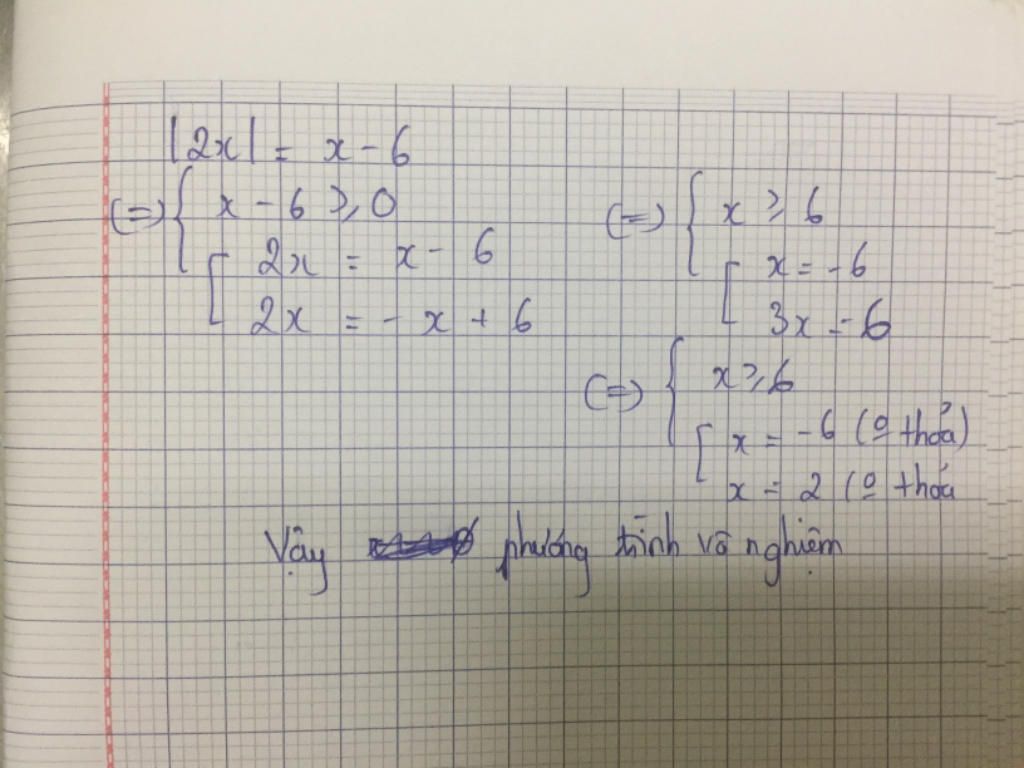 |2x| = x - 6
(=) { x - 6 ⩾ 0
[ 2x = x - 6
2x = - x + 6
(=) { x ⩾ 6
[ x = -6
3x = 6
(=) { x ⩾ 6
[ x = -6 (º thỏa)
x = 2 (º thỏa
Vậy phương trình vô nghiệm